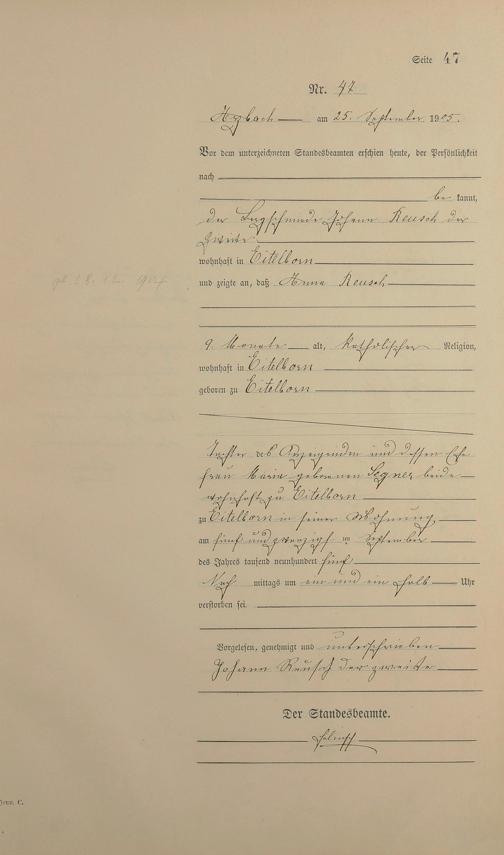 Seite 47
Nr. 47
Arzbach am 25. September 1905.
Vor dem unterzeichneten Standesbeamten erschien heute, der Persönlichkeit
nach
be kannt,
der Bergschmied Johann Reusch der
Zweite
wohnhaft in Eitelborn
und zeigte an, daß Anna Reusch
9 Monate alt, katholischer Religion,
wohnhaft in Eitelborn
geboren zu Eitelborn
Tochter des Anzeigenden und dessen Ehe
frau Maria geborenen Segner beide
wohnhaft zu Eitelborn
zu Eitelborn in seiner Wohnung
am fünf und zwanzigsten September
des Jahres tausend neunhundert fünf
Nach mittags um ein und ein halb Uhr
verstorben sei.
Vorgelesen, genehmigt und unterschrieben
Johann Reusch der zweite
Der Standesbeamte.
Form. C.